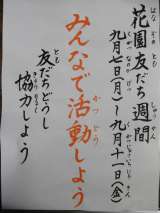 花園友だち週間
九月七日(月)~九月十一日(金)
みんなで活動しよう
友だちどうし
協力しよう